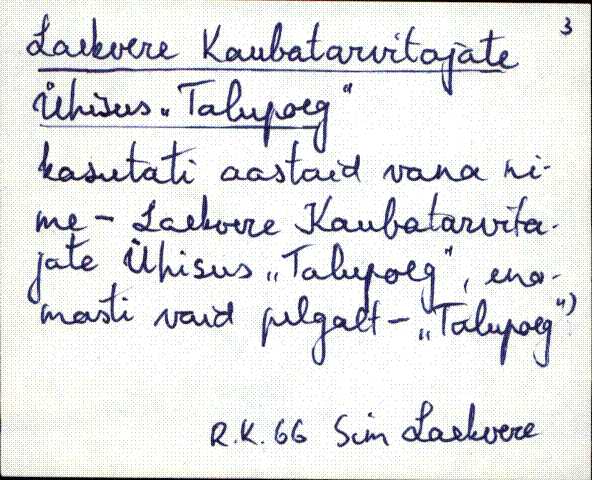 3
Laekvere Kaubatarvitajate
Ühisus „Talupoeg"
kasutati aastaid vana ni-
me - Laekvere Kaubatarvita-
jate Ühisus „Talupoeg", ena-
masti vaid julgalt - „Talupoeg")
R.K. 66 Sim Laekvere